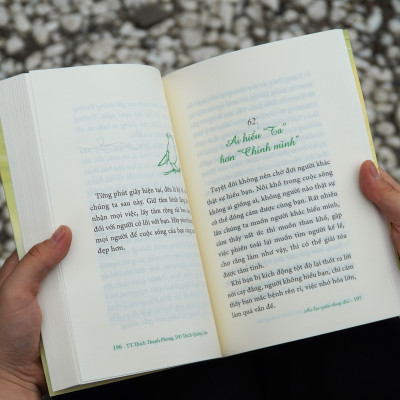 Từng phút giây hiện tại, đều là
chúng ta sau này. Giữ tâm bình
nhận mọi việc, lấy tâm rộng rãi
đối với người có lỗi với bạn. Hãy
mọi người để cuộc sống của bạn
đẹp hơn.
196 - TT. Thích Thanh Phong, ĐĐ Thích
62
Ai hiểu "Ta"
hơn "Chính mình"
Tuyệt đối không nên chờ đợi người khác
thật sự hiểu bạn. Nỗi khổ trong cuộc sống
không ai giống ai, không người nào thật sự
có thể đồng cảm được cùng bạn. Rất nhiều
lần chúng ta muốn người khác hiểu mình,
cảm thấy uất ức thì muốn than khổ, gặp
việc phiền toái lại muốn tìm người kể lể,
cho rằng làm như vậy, thì có thể giải tỏa
được tâm tình.
Khi bạn bị kích động tột độ lại thốt ra
nỗi cay đắng, người không hiểu bạn, chỉ cảm
thấy bạn mắc bệnh rên rỉ, việc nhỏ hóa lớn,
làm quá vấn đề.
- 197